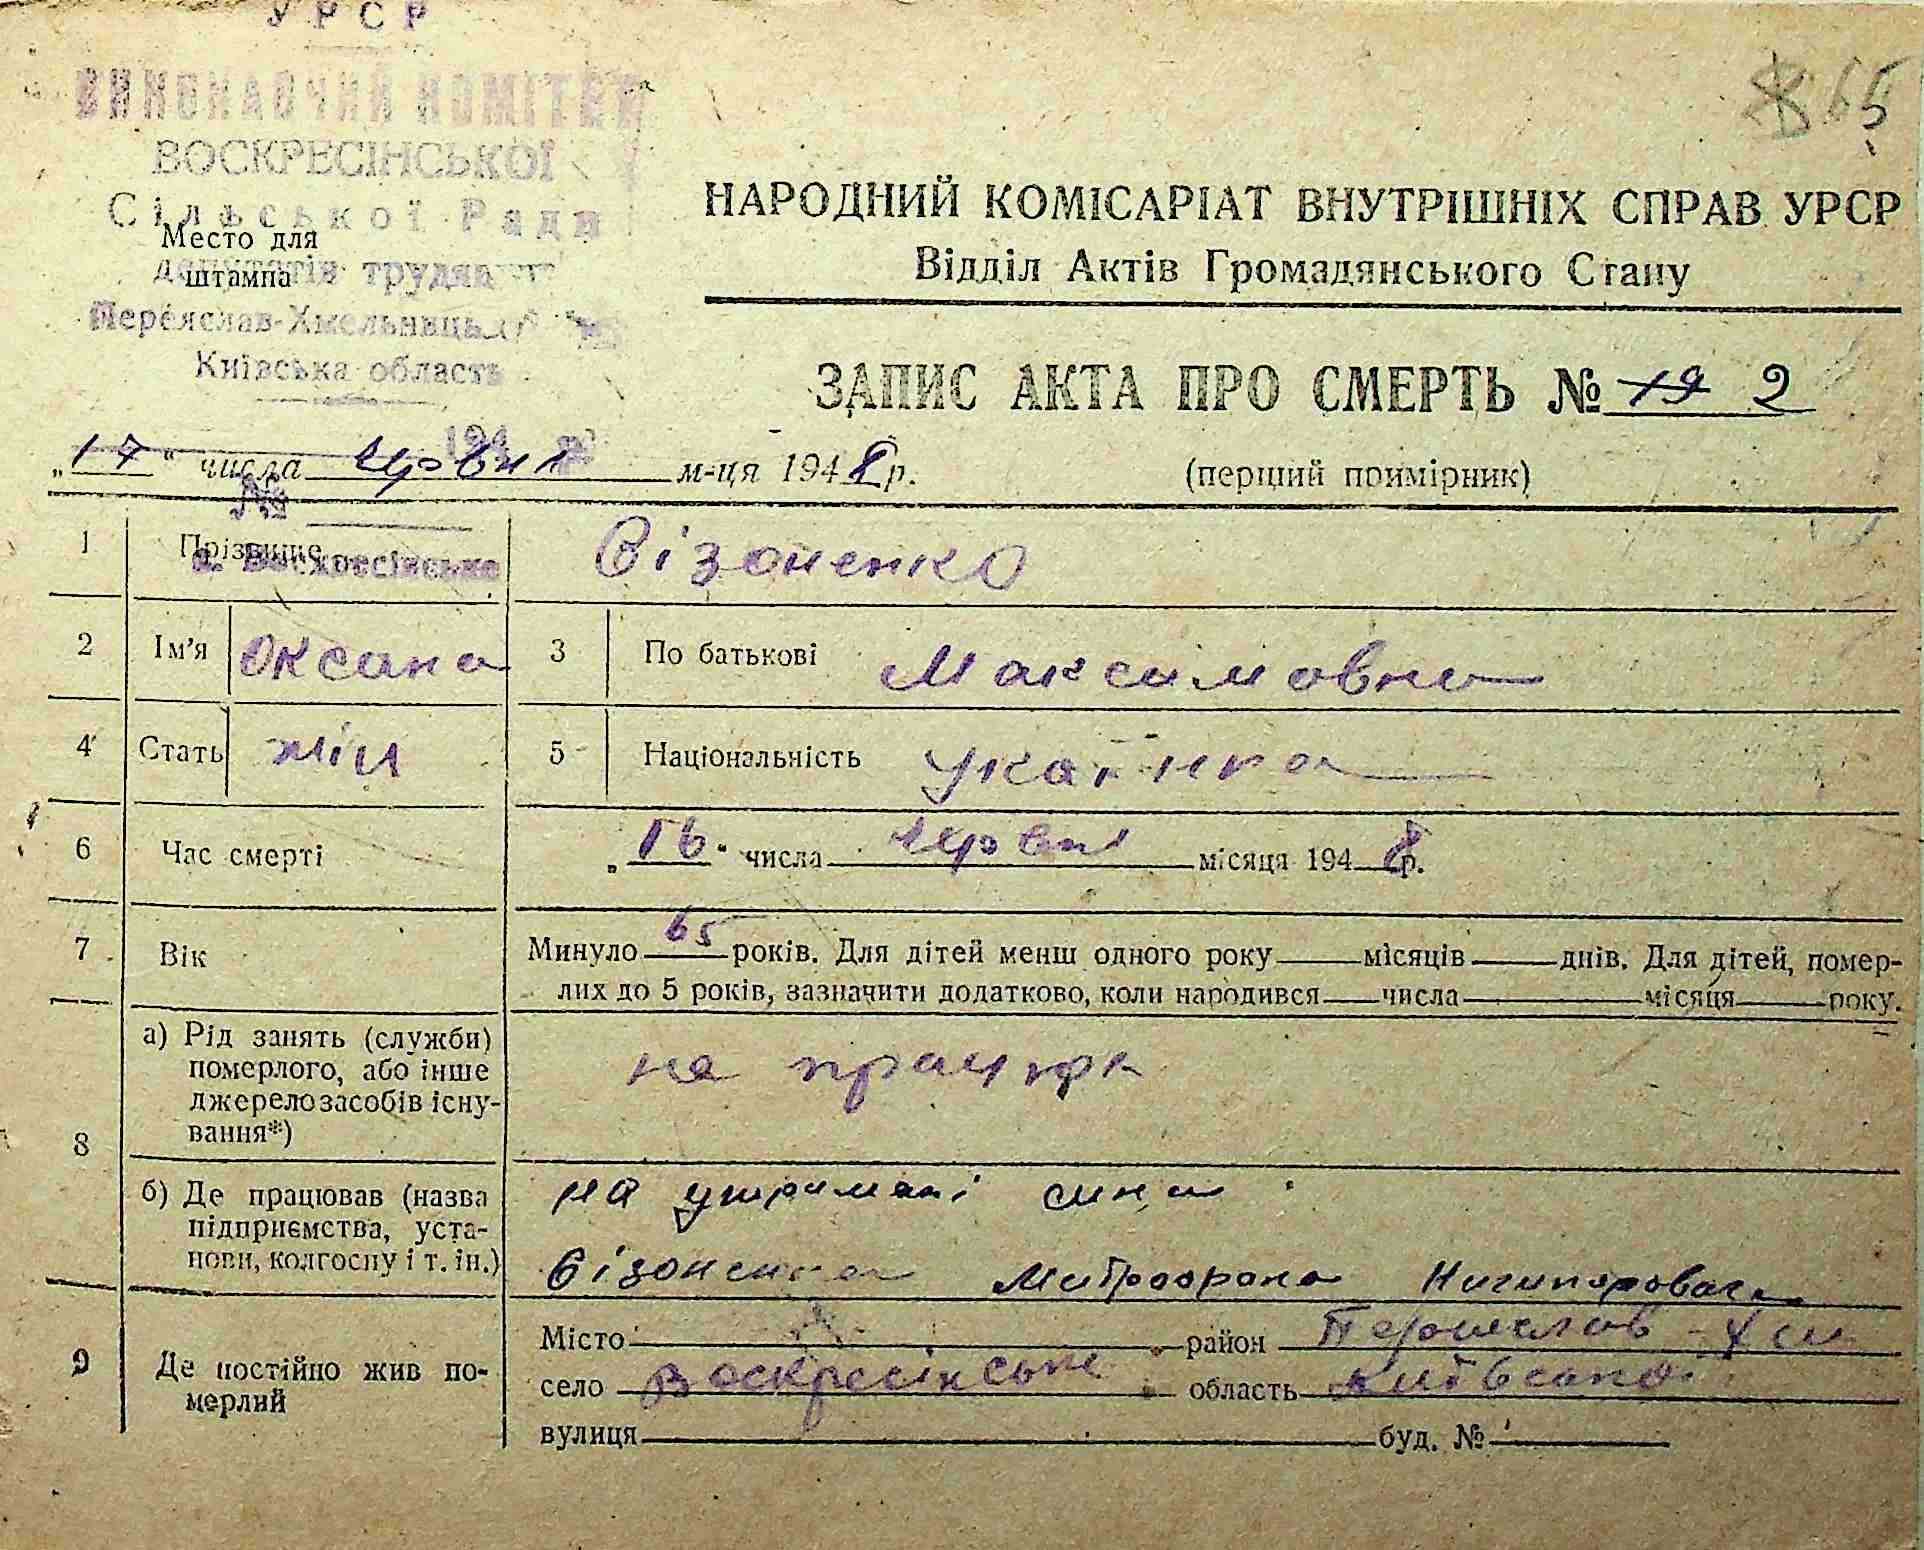 УРСР
ВИКОНАВЧИЙ КОМІТЕТ
ВОСКРЕСІНСЬКОЇ
Сільської Ради
Место для
штампа
депутатів трудящ
Переяслав-Хмельницьк
Київська область
65
НАРОДНИЙ КОМІСАРІАТ ВНУТРІШНІХ СПРАВ УРСР
Відділ Актів Громадянського Стану
ЗАПИС АКТА ПРО СМЕРТЬ № 19 2
„17“ числа червня м-ця 1948 р.
(перший примірник)
194 р.
№
с. Воскресінське
1 Прізвище Візоненко
2 Ім'я Оксана 3 По батькові Максимовна
4 Стать жін 5 Національність Українка
6 Час смерті „16“ числа червня місяця 1948 р.
7 Вік Минуло 65 років. Для дітей менш одного року місяців днів. Для дітей, помер-
лих до 5 років, зазначити додатково, коли народився числа місяця року.
8 а) Рід занять (служби) померлого, або інше джерело засобів існу-вання*) не працює
б) Де працював (назва підприємства, уста-нови, колгоспу і т. ін.) на утримані сина
Візоненка Митрофана Никипоровича
9 Де постійно жив по-мерлий
Місто район Переяслав-Хм
село Воскресінське область Київської
вулиця буд. №